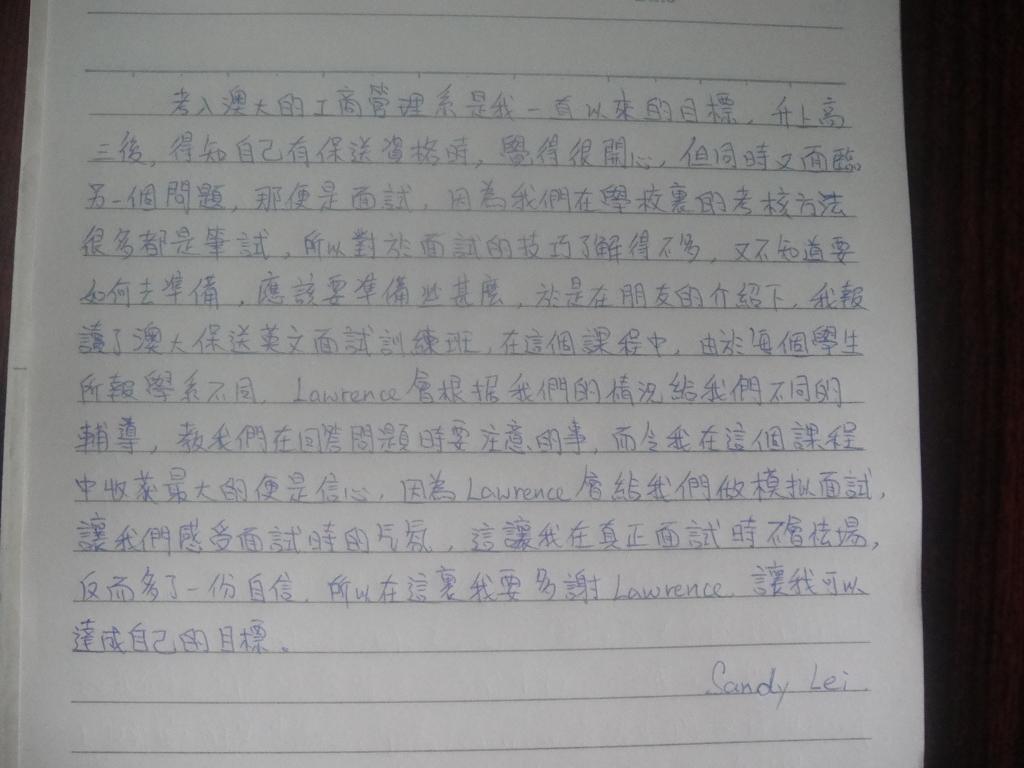 考入澳大的工商管理系是我一直以來的目標，升上高
三後，得知自己有保送資格時，覺得很開心，但同時又面臨
另一個問題，那便是面試，因為我們在學校裏的考核方法
很多都是筆試，所以對於面試的技巧了解得不多，又不知道要
如何去準備，應該要準備些甚麼，於是在朋友的介紹下，我報
讀了澳大保送英文面試訓練班，在這個課程中，由於每個學生
所報學系不同，Lawrence會根据我們的情況給我們不同的
輔導，教我們在回答問題時要注意的事，而令我在這個課程
中收获最大的便是信心，因為Lawrence會給我們做模拟面試，
讓我們感受面試時的气氛，這讓我在真正面試時不會怯場，
反而多了一份自信，所以在這裏我要多謝Lawrence，讓我可以
達成自己的目標。
Sandy Lei